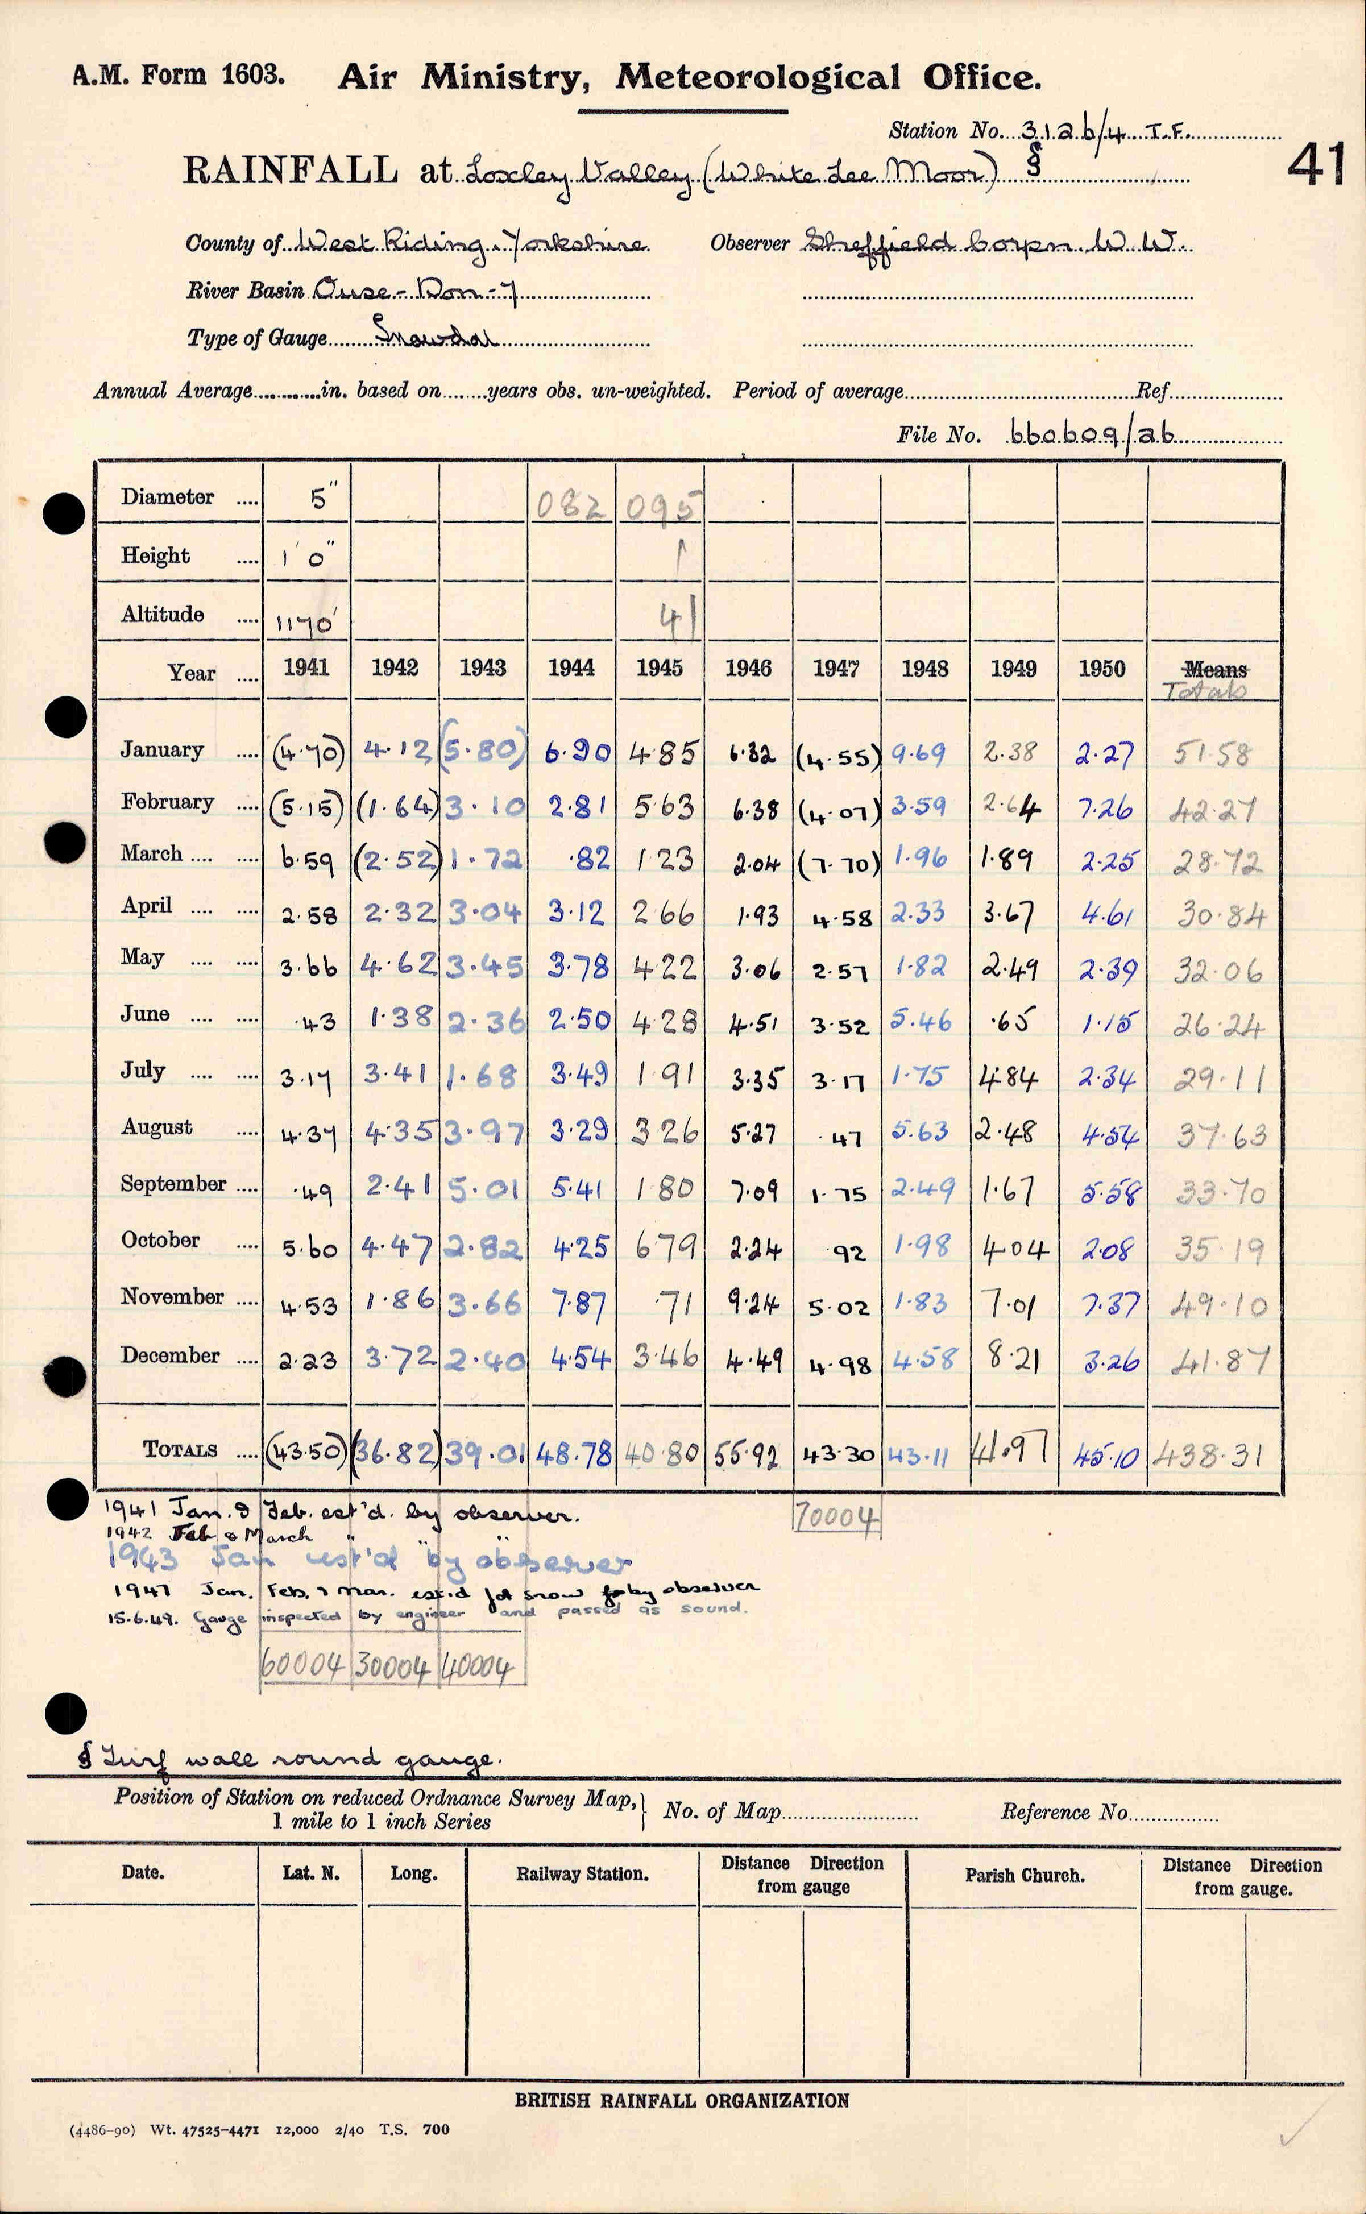 A.M. Form 1603. Air Ministry, Meteorological Office.
Station No. 3126/4 T.F.
41
RAINFALL at Loxley Valley (White Lee Moor) §
County of West Riding. Yorkshire Observer Sheffield Corpn. W. W.
River Basin Ouse - Don - 7
Type of Gauge Snowdon
Annual Average in. based on years obs. un-weighted. Period of average Ref.
File No. 660609/26
Diameter .... 5" 082 095
Height .... 1' 0" 1
Altitude .... 1170' 41
Year .... 1941 1942 1943 1944 1945 1946 1947 1948 1949 1950 Means
Totals
January .... (4.70) 4.12 (5.80) 6.90 4.85 6.32 (4.55) 9.69 2.38 2.27 51.58
February .... (5.15) (1.64) 3.10 2.81 5.63 6.38 (4.07) 3.59 2.64 7.26 42.27
March .... .... 6.59 (2.52) 1.72 .82 1.23 2.04 (7.70) 1.96 1.89 2.25 28.72
April .... .... 2.58 2.32 3.04 3.12 2.66 1.93 4.58 2.33 3.67 4.61 30.84
May .... .... 3.66 4.62 3.45 3.78 4.22 3.06 2.57 1.82 2.49 2.39 32.06
June .... .... .43 1.38 2.36 2.50 4.28 4.51 3.52 5.46 .65 1.15 26.24
July .... .... 3.17 3.41 1.68 3.49 1.91 3.35 3.17 1.75 4.84 2.34 29.11
August .... 4.37 4.35 3.97 3.29 3.26 5.27 .47 5.63 2.48 4.54 37.63
September .... .49 2.41 5.01 5.41 1.80 7.09 1.75 2.49 1.67 5.58 33.70
October .... 5.60 4.47 2.82 4.25 6.79 2.24 .92 1.98 4.04 2.08 35.19
November .... 4.53 1.86 3.66 7.87 .71 9.24 5.02 1.83 7.01 7.37 49.10
December .... 2.23 3.72 2.40 4.54 3.46 4.49 4.98 4.58 8.21 3.26 41.87
TOTALS .... (43.50) (36.82) 39.01 48.78 40.80 55.92 43.30 43.11 41.97 45.10 438.31
1941 Jan. & Feb. est'd. by observer. 70004
1942 Feb & March " " "
1943 Jan est'd by observer
1947 Jan. Feb. & Mar. est.d for snow by observer
15.6.49. Gauge inspected by engineer and passed as sound.
60004 30004 40004
§ Turf wall round gauge.
Position of Station on reduced Ordnance Survey Map, } No. of Map Reference No.
1 mile to 1 inch Series
Date. Lat. N. Long. Railway Station. Distance Direction from gauge Parish Church. Distance Direction from gauge.
BRITISH RAINFALL ORGANIZATION
(4486-90) Wt. 47525-4471 12,000 2/40 T.S. 700